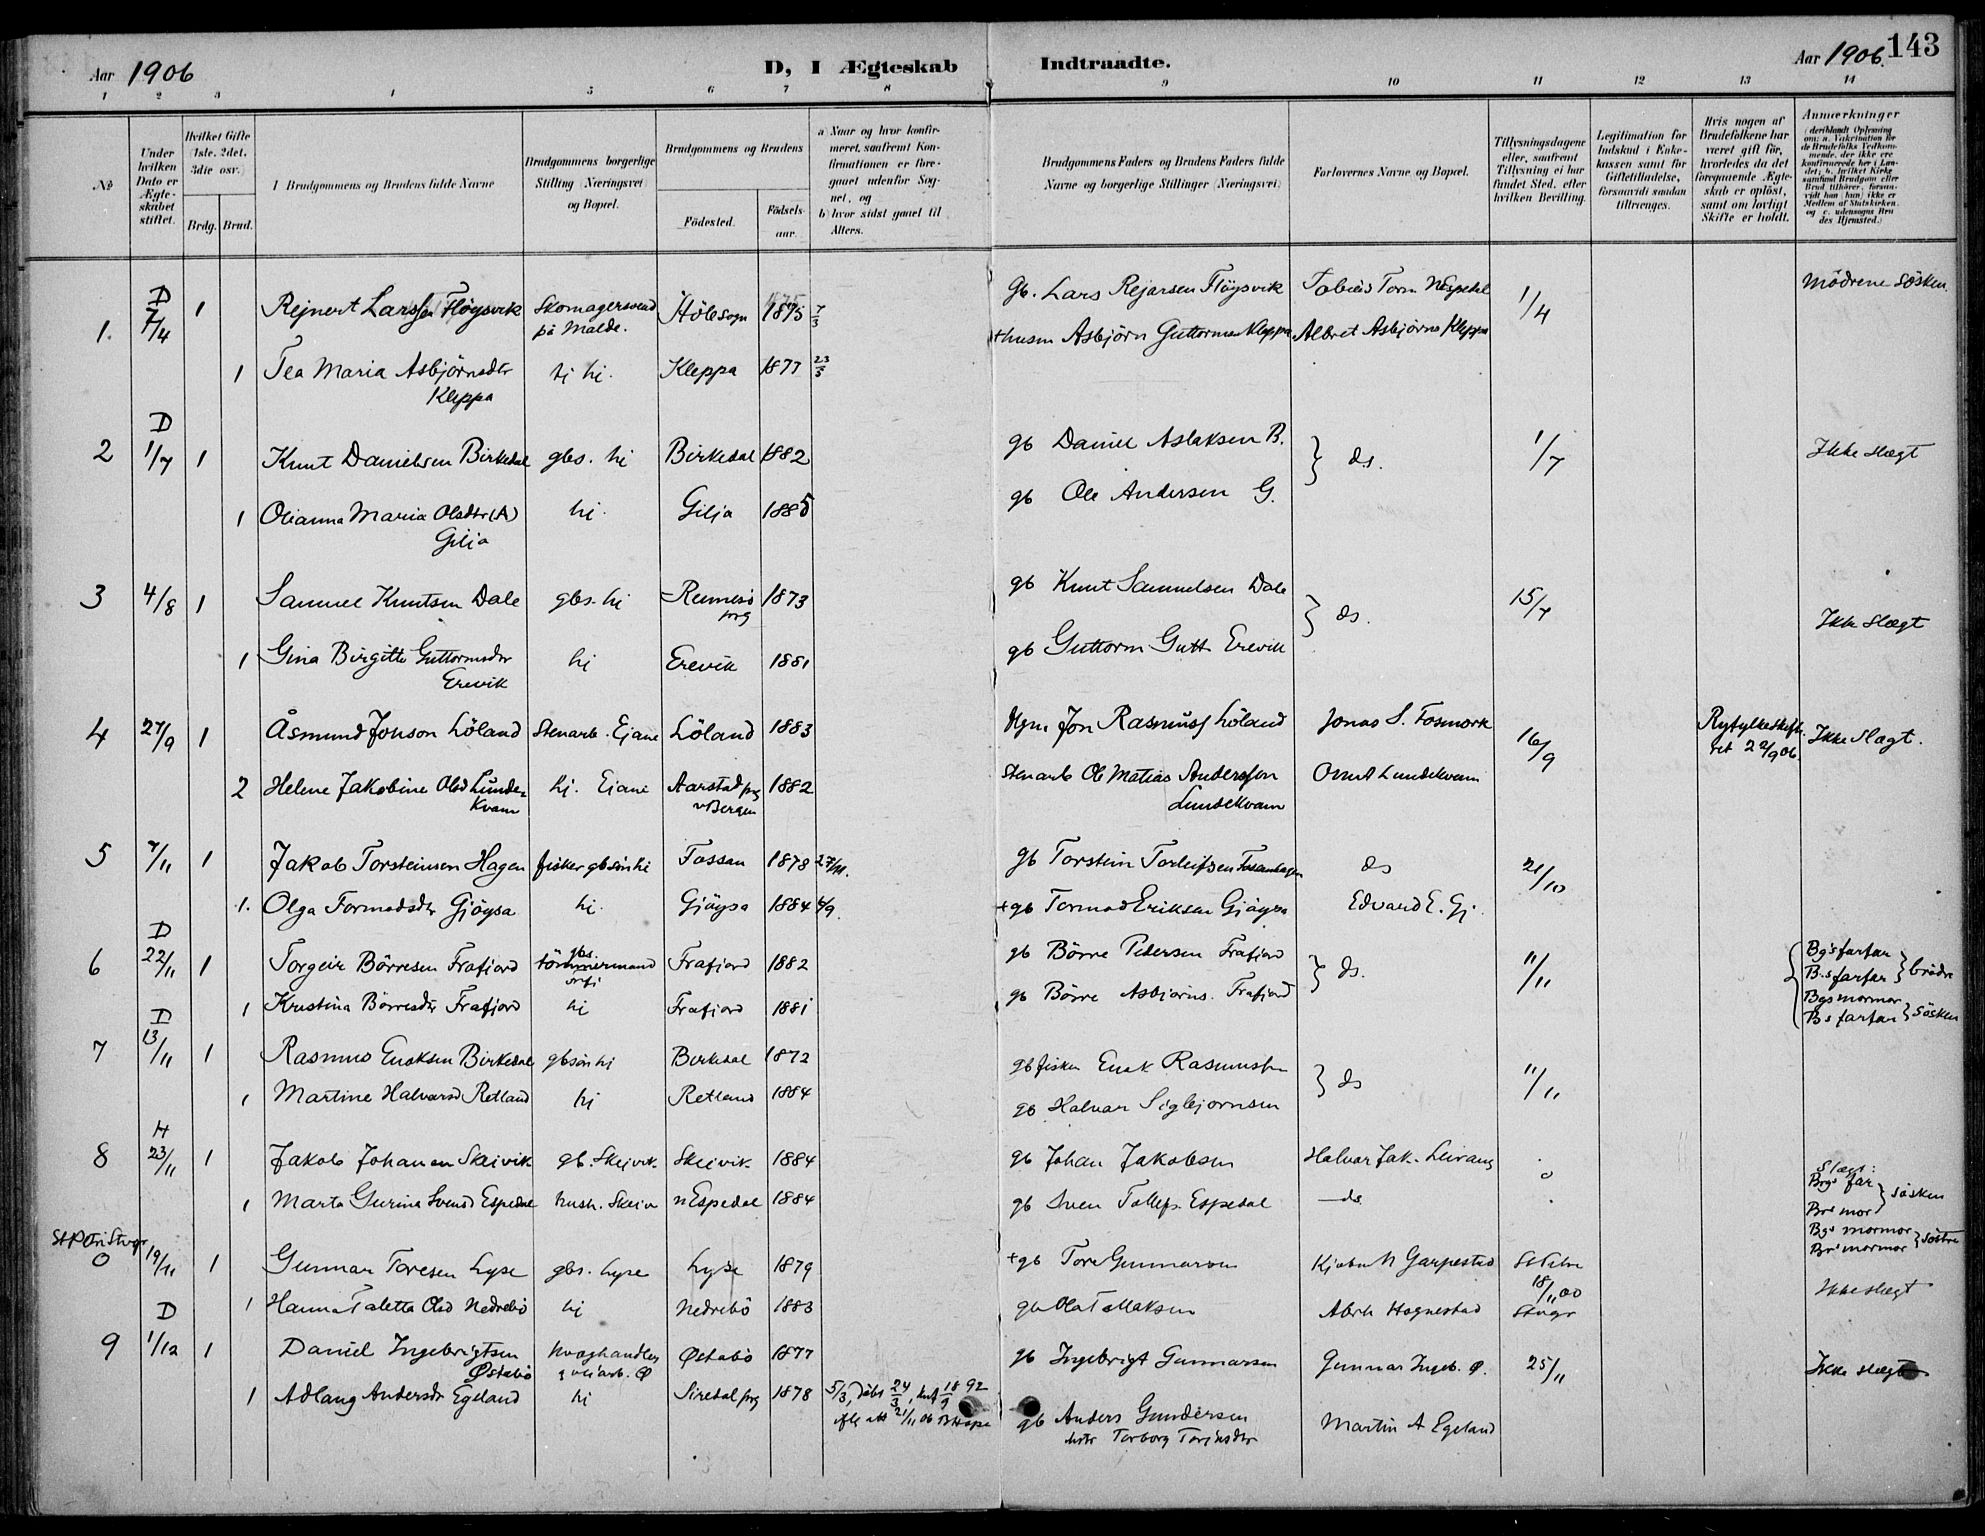 Aar 1906
D, I Ægteskab Indtraadte.
Aar 1906. 143
1 2 3 4 5 6 7 8 9 10 11 12 13 14
№
Under hvilken Dato er Ægteskabet stiftet.
Hvilket Gifte (1ste, 2det, 3die osv.)
Brdg. Brud.
Brudgommens og Brudens fulde Navne
Brudgommens borgerlige Stilling (Næringsvei) og Bopæl.
Brudgommens og Brudens
Fødested. Fødselsaar.
a) Naar og hvor konfirmeret, saafremt Konfirmationen er foregaaet udenfor Sognet, og
b) hvor sidst gaaet til Alters.
Brudgommens Faders og Brudens Faders fulde Navne og borgerlige Stillinger (Næringsvei)
Forlovernes Navne og Bopæl.
Tillysningsdagene eller, saafremt Tillysning ei har fundet Sted, efter hvilken Bevilling.
Legitimation for Indskud i Enkekassen samt for Giftetilladelse, forsaavidt saadan tiltrænges.
Hvis nogen af Brudefolkene har været gift før, hvorledes da det foregaaende Ægteskab er opløst, samt om lovligt Skifte er holdt.
Anmærkninger
1. D 7/4 1 Rejnert Larssen Fløysvik Skomagersvend på Malde. Höle sogn 1875 7/3 gb. Lars Rejarsen Fløysvik Tobias Torm Nespedal 1/4 Mödrene Sösken
1 Tea Maria Asbjörnsdtr Kleppa hj hi. Kleppa 1877 23/5 +husm Asbjörn Guttormsen Kleppa Albret Asbjörns Kleppa
2 D 1/7 1 Knut Danielsen Birkedal gbs. hi Birkedal 1882 gb Daniel Aslaksen B. ds. 1/7 Ikke slægt
1 Olianna Maria Olsdtr (A) Gilja hj. Gilja 1885 gb Ole Andersen G.
3 4/8 1 Samuel Knutsen Dale gbs. hi Rennesö prg 1873 gb Knut Samuelsen Dale ds. 15/7 Ikke slægt
1 Gina Birgitte Guttormsdtr Erevik hj Erevik 1881 gb Guttorm Gutt Erevik
4 27/9 1 Åsmund Jonson Löland Stenarb. Ejane Löland 1883 Jon Rasmuss Löland Jonas S. Fosmork 16/9 Ryfylkeskifte 22/9 06. Ikke Slægt.
2 Helene Jakobine Olsd Lundekvam hj. Ejane Aarstad prg v Bergen 1882 Stenarb Ole Matias Anderssen Lundekvam Lundekvam
5 7/11 1 Jakob Torsteinsen Hagen fisker gbsön hi Fossan 1878 27/ gb Torstein Torleifsen Fossanhagen ds 21/10
1. Olga Tormodsdtr Gjöysa hj. Gjöysa 1884 4/9. +gb Tormod Eriksen Gjöysa Edvard E. Gj.
6 D 22/11 1 Torgeir Börresen Frafjord gbs. tömmermand Frafjord 1882 gb Börre Pedersen Frafjord ds. 11/11 Bg's farfar B.s farfar } brödre
1 Kristina Börresdtr Frafjord hj Frafjord 1881 gb Börre Asbjörns. Frafjord Bgs mormor Bs farfar } sösken
7 D 13/11 1 Rasmus Enoksen Birkedal gbsön hi Birkedal 1872 gb fisker Enok Rasmussen ds 11/11
1 Martine Halvarsd Retland hj Retland 1884 gb Halvar Sigbjornsen
8 H 23/11 1 Jakob Johansen Skeivik gb. Skeivik Skeivik 1884 gb Johan Jakobsen Halvar Jak. Leirang o Slægt: Brgs far
1 Marta Gurina Svensd Espedal hush. Skeiv n Espedal 1884 gb Sven Tollefs. Espedal ds Brs mor } sösken
Bgs mormor Brs mormor } söstre
St Petri Stvgr 0 19/11 1 Gunnar Toresen Lyse gbs. Lyse Lyse 1879 +gb Tore Gunnarson N Garpestad 18/11 00 Ikke slægt
1 Hanna Taletta Olsd Nedrebö hj Nedrebö 1883 gb Ola Tollaksen Abrh Hognestad Stvgr
9 D 1/12 1 Daniel Ingebrigtsen Østabö kvæghandler Ø Østabö 1877 gb Ingebrigt Gunnarsen Gunnar Ingeb. Ø. 25/11 Ikke slægt
1 Adlaug Andersdr Egeland hi Siredal prg 1878 5/3, döbt 24/3, knf 18/9 92 ifl att 21/11 06 gb Anders Gundersen Martin A Egeland
Torborg Torjusdtr